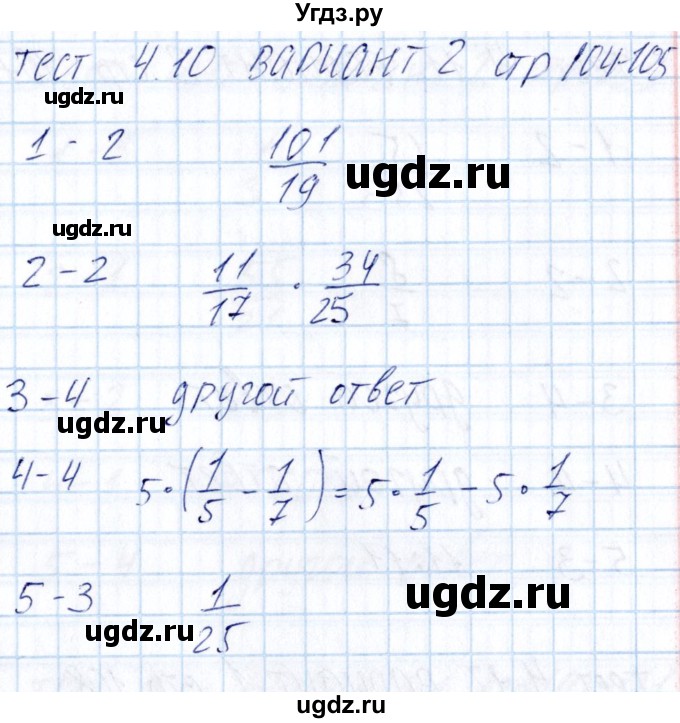 Угдз.ру
Тест 4.10 вариант 2 стр 104-105
ugdz.ru
1 - 2   101/19   ugdz.ru
ugdz.ru
2 - 2   11/17 · 34/25
3 - 4   другой ответ
ugdz.ru
4 - 4   5·(1/5 - 1/7) = 5·1/5 - 5·1/7
5 - 3   1/25   ugdz.ru
ugdz.ru
ugdz.ru